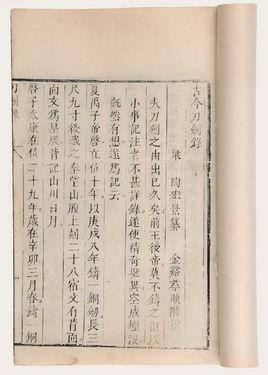 古今刀劍錄
梁 陶宏景纂 金谿
夫刀劍之由出已久矣前王後帝莫不鑄之但以
小事記注者不甚詳錄遂使精奇挺異空成堙沒
慨然有想遂為記云
夏禹子帝啓在位十年以庚戌八年鑄一銅劍長三
尺九寸後藏之秦望山腹上刻二十八宿文有背面
面文為星辰背記山川日月
啓子太康在位二十九年歲在辛卯三月春鑄一銅